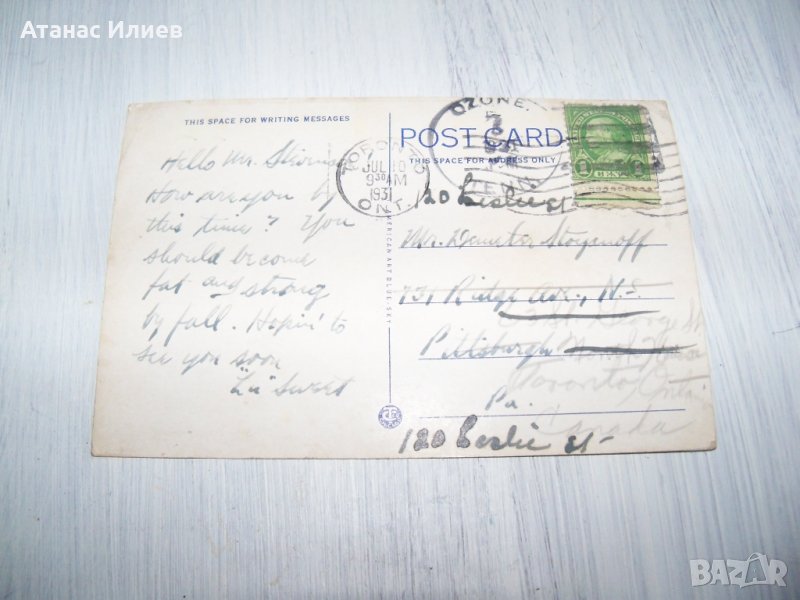 Атанас Илиев
THIS SPACE FOR WRITING MESSAGES
Hello Mr.
How are you by
this time? You
should become
fat and strong
by fall. Hopin' to
see you soon
"Lu" Sweet
AMERICAN ART BLUE SKY
POST CARD
THIS SPACE FOR ADDRESS ONLY
TORONTO
JUL 10
9 30 AM
1931
ONT.
OZONE.
TENN.
1 CENT 1
120 Leslie St
Mr. Demeter Stoyenoff
731 Ridge Ave., N.S.
Pittsburgh
Pa.
George St
Toronto, Ontario
Canada
120 Leslie St-
BAZAR